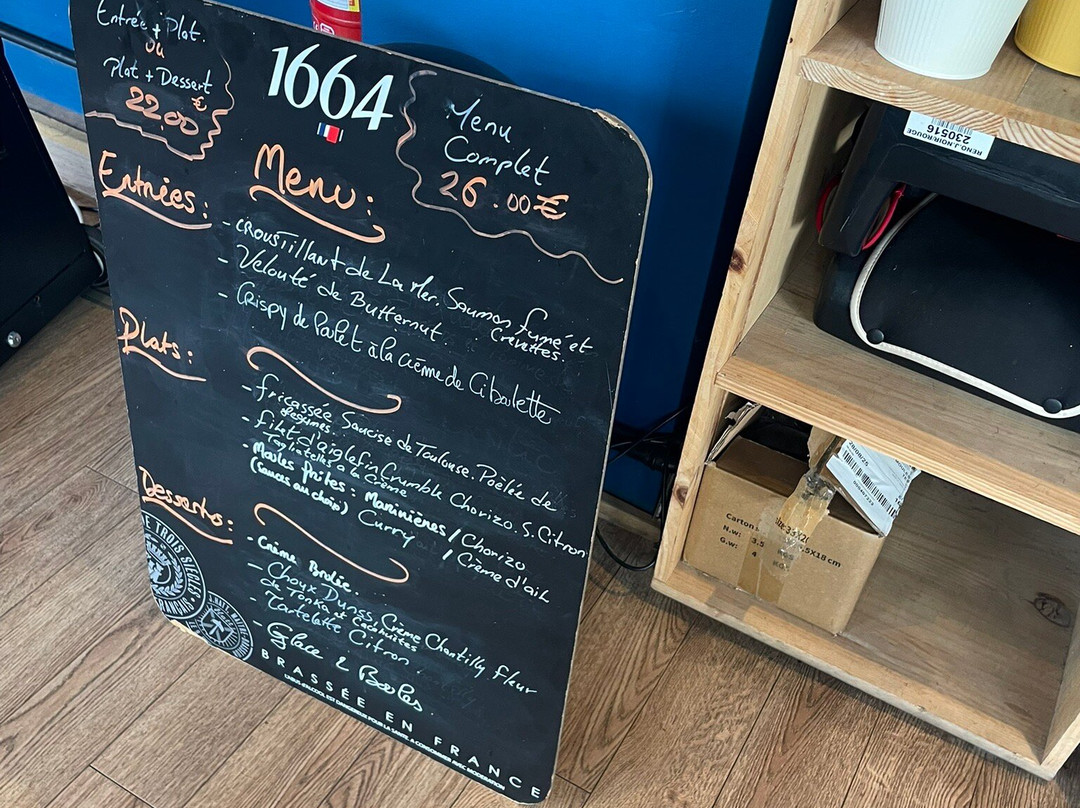 Entrée + Plat.
ou
Plat + Dessert
22.00€
1664
Menu
Complet
26.00€
Menu :
Entrées :
- Croustillant de La Mer. Saumon fumé et
Crevettes.
- Velouté de Butternut
- Crispy de Poulet à la crème de Ciboulette
Plats :
- fricassée Saucisse de Toulouse. Poêlée de
légumes.
- filet d'aiglefin Crumble Chorizo. S. Citron
Tagliatelles à la Crème
- Moules frites : Marinières / Chorizo
(Sauces au choix) Curry / Crème d'ail
Desserts :
- Crème Brûlée.
- Choux Dunes, Crème Chantilly fleur
de Tonka et Cacahuètes
- Tartelette Citron.
- Glace 2 Boules.
E TROIS SIÈCLES
FRANÇAIS
BRASSÉE EN FRANCE
L'ABUS D'ALCOOL EST DANGEREUX POUR LA SANTÉ. A CONSOMMER AVEC MODERATION
RENO.J.NOIR/ROUGE
230516
Carton
N.w: 3.5
G.w: 4 KG
5X18 cm